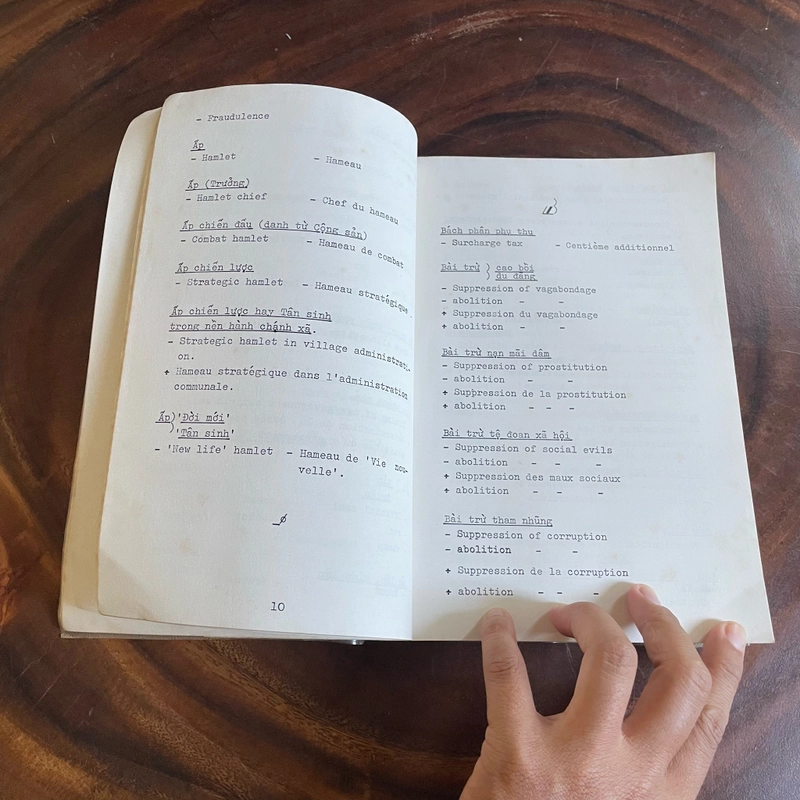 - Fraudulence
Ấp
- Hamlet - Hameau
Ấp (Trưởng)
- Hamlet chief - Chef du hameau
Ấp chiến đấu (danh từ Cộng sản)
- Combat hamlet - Hameau de combat
Ấp chiến lược
- Strategic hamlet - Hameau stratégique.
Ấp chiến lược hay Tân sinh
trong nền hành chánh xã.
- Strategic hamlet in village administrati-
on.
+ Hameau stratégique dans l'administration
communale.
Ấp) 'Đời mới'
) 'Tân sinh'
- 'New life' hamlet - Hameau de 'Vie nou-
velle'.
10
B
Bách phân phụ thu
- Surcharge tax - Centième additionnel
Bài trừ ) cao bồi
) du đãng
- Suppression of vagabondage
- abolition - -
+ Suppression du vagabondage
+ abolition - -
Bài trừ nạn mãi dâm
- Suppression of prostitution
- abolition - -
+ Suppression de la prostitution
+ abolition - - -
Bài trừ tệ đoan xã hội
- Suppression of social evils
- abolition - - -
+ Suppression des maux sociaux
+ abolition - - -
Bài trừ tham nhũng
- Suppression of corruption
- abolition - -
+ Suppression de la corruption
+ abolition - - -